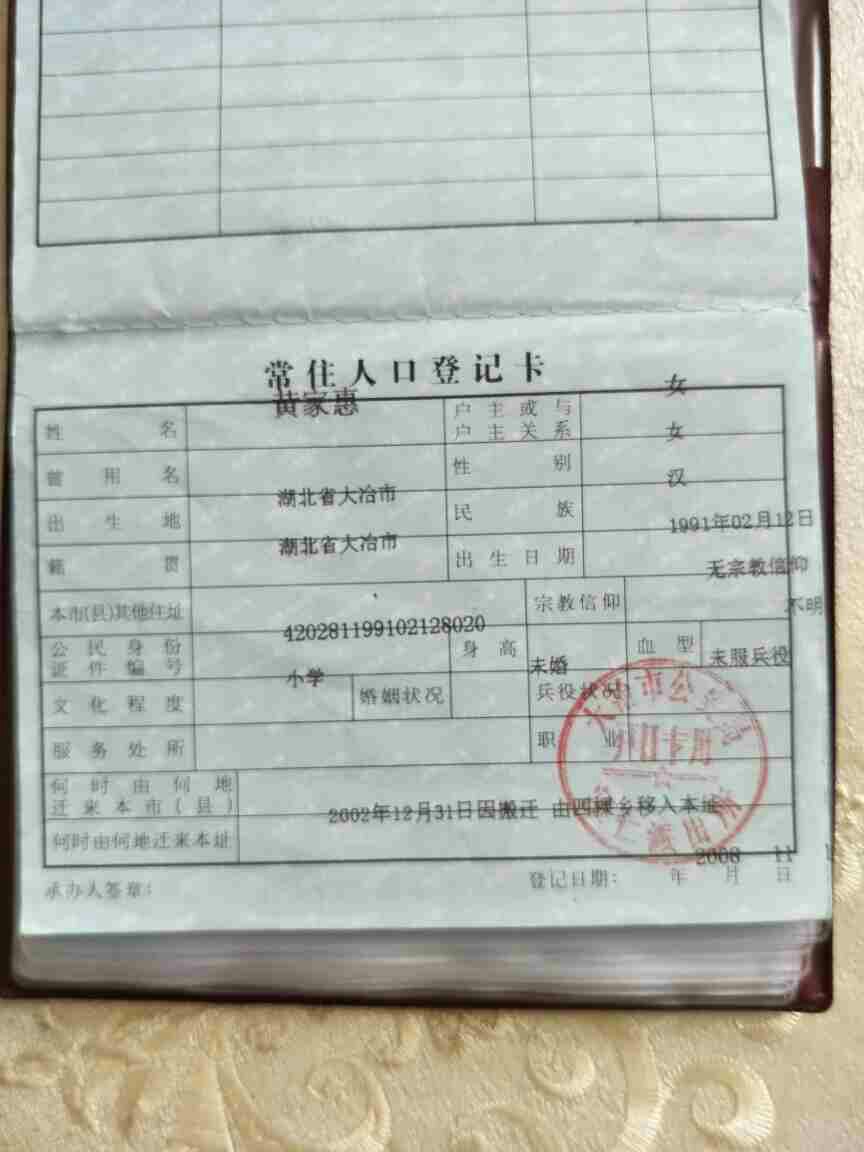 常住人口登记卡
姓名 黄家惠 户主或与户主关系 女
曾用名 性别 女
出生地 湖北省大冶市 民族 汉
籍贯 湖北省大冶市 出生日期 1991年02月12日
本市(县)其他住址 宗教信仰 无宗教信仰
公民身份证件编号 420281199102128020 身高 血型 不明
文化程度 小学 婚姻状况 未婚 兵役状况 未服兵役
服务处所 职业
何时由何地迁来本市(县)
何时由何地迁来本址 2002年12月31日因搬迁 由四棵乡移入本址
承办人签章: 登记日期: 2008年11月 日